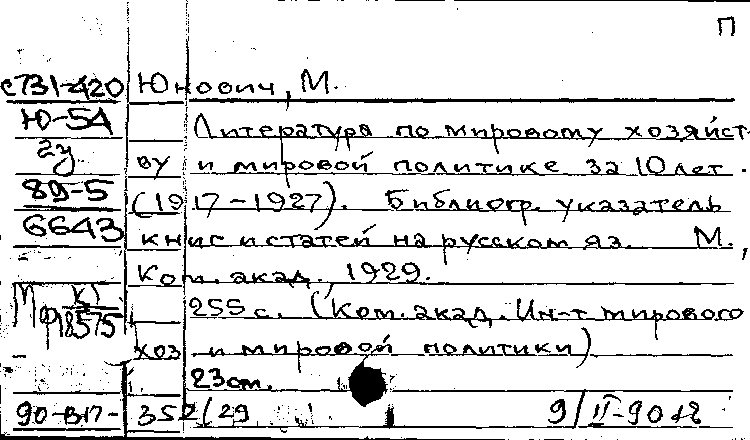 П
с731-420 Юнович, М.
Ю-54 Литература по мировому хозяйст-
2у ву и мировой политике за 10 лет.
89-5 (1917-1927). Библиогр. указатель
6643 книг и статей на русском яз. М.,
Ком. акад., 1929.
255 с. (Ком. акад. Ин-т мирового
хоз и мировой политики)
23см.
90-В17- 352/29 9/II-90